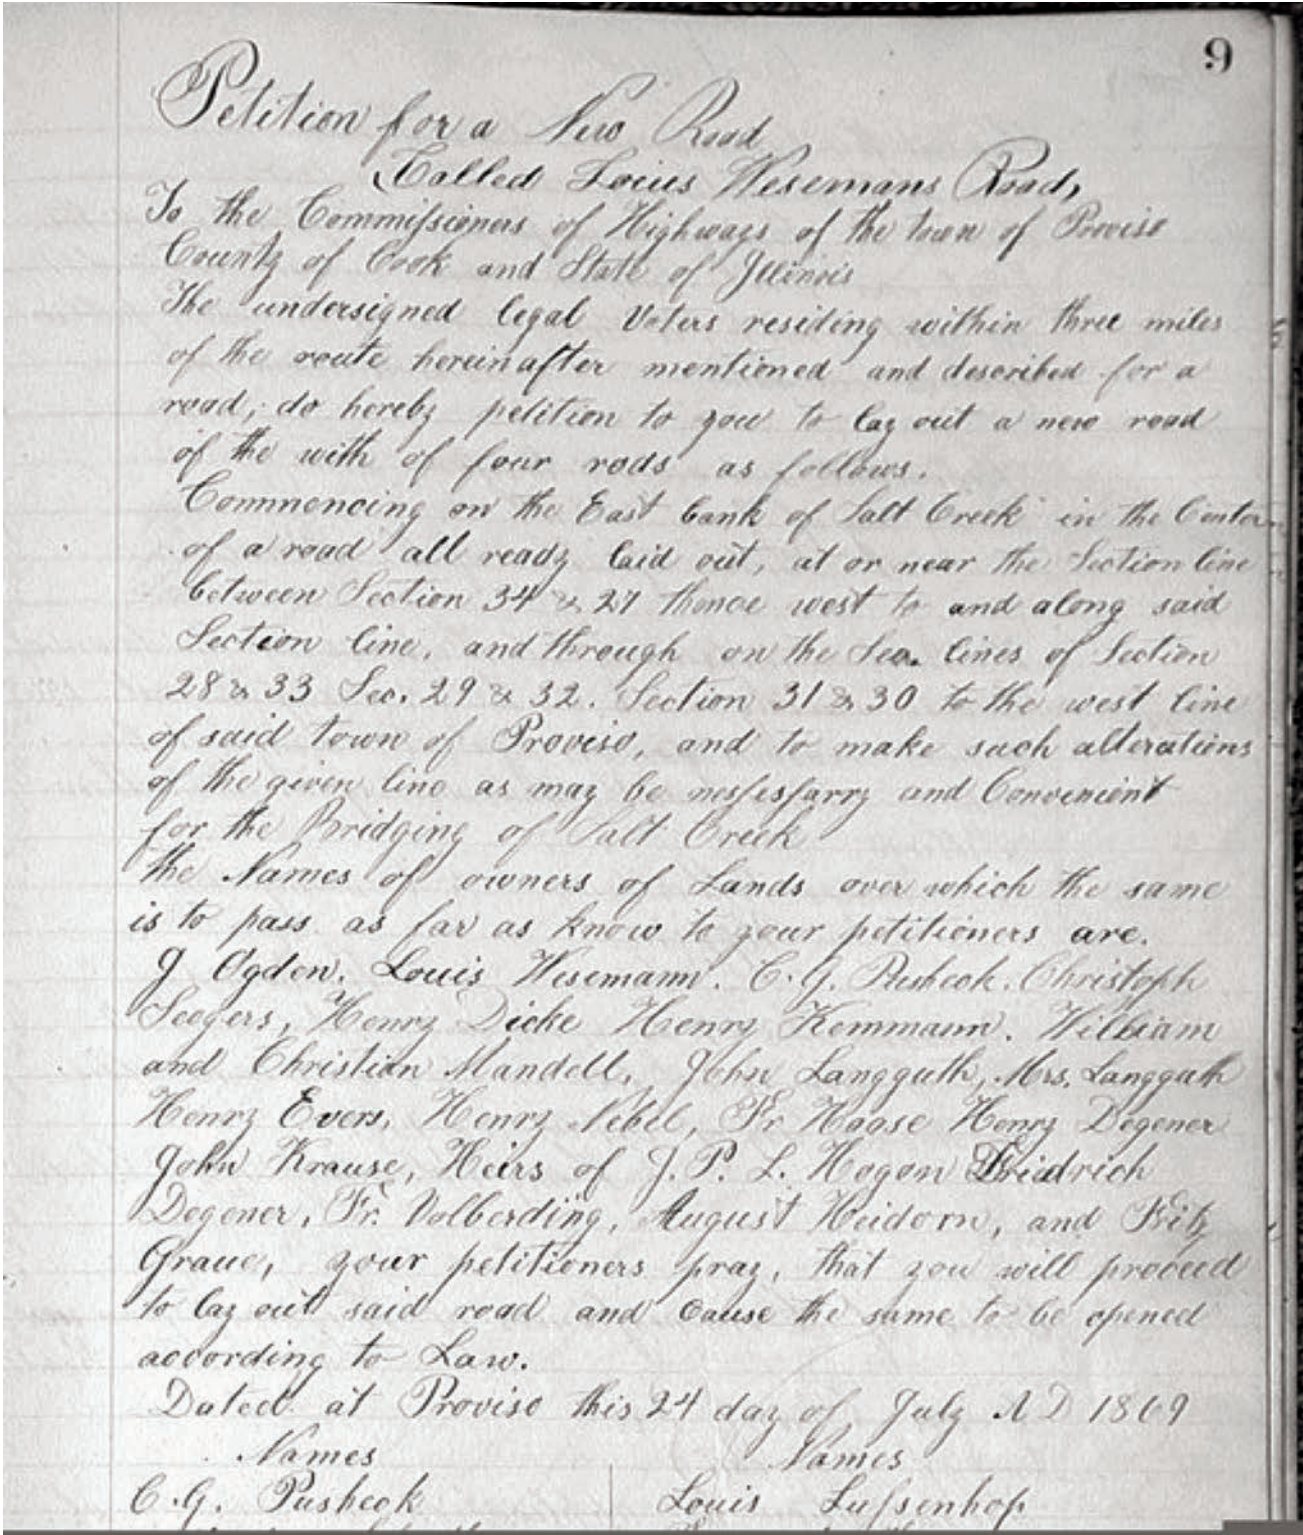 9
Petition for a New Road
Called Louis Wesemans Road,
To the Commissioners of Highways of the town of Proviso
County of Cook and State of Illinois
The undersigned legal Voters residing within three miles
of the route hereinafter mentioned and described for a
road, do hereby petition to you to lay out a new road
of the with of four rods as follows.
Commencing on the East bank of Salt Creek in the Center
of a road all ready laid out, at or near the Section line
between Section 34 & 27 thence west to and along said
Section line, and through on the Sec. lines of Section
28 & 33 Sec. 29 & 32. Section 31 & 30 to the west line
of said town of Proviso, and to make such alterations
of the given line as may be nessessarry and Convenient
for the Bridging of Salt Creek
the Names of owners of Lands over which the same
is to pass as far as know to your petitioners are.
J Ogden. Louis Wesemann. C. G. Pusheck. Christoph
Seegers, Henry Dicke Henry Kemmann. William
and Christian Mandell, John Langguth, Mrs. Langguth
Henry Evers, Henry Nebel, Fr Haase Henry Degener
John Krause, Heirs of J. P. L. Hogan Friedrich
Degener, Fr. Volberding, August Heidorn, and Fritz
Graue, your petitioners pray, that you will proceed
to lay out said road and cause the same to be opened
according to Law.
Dated at Proviso this 24 day of July A D 1869
Names Names
C. G. Pusheck Louis Lussenhop